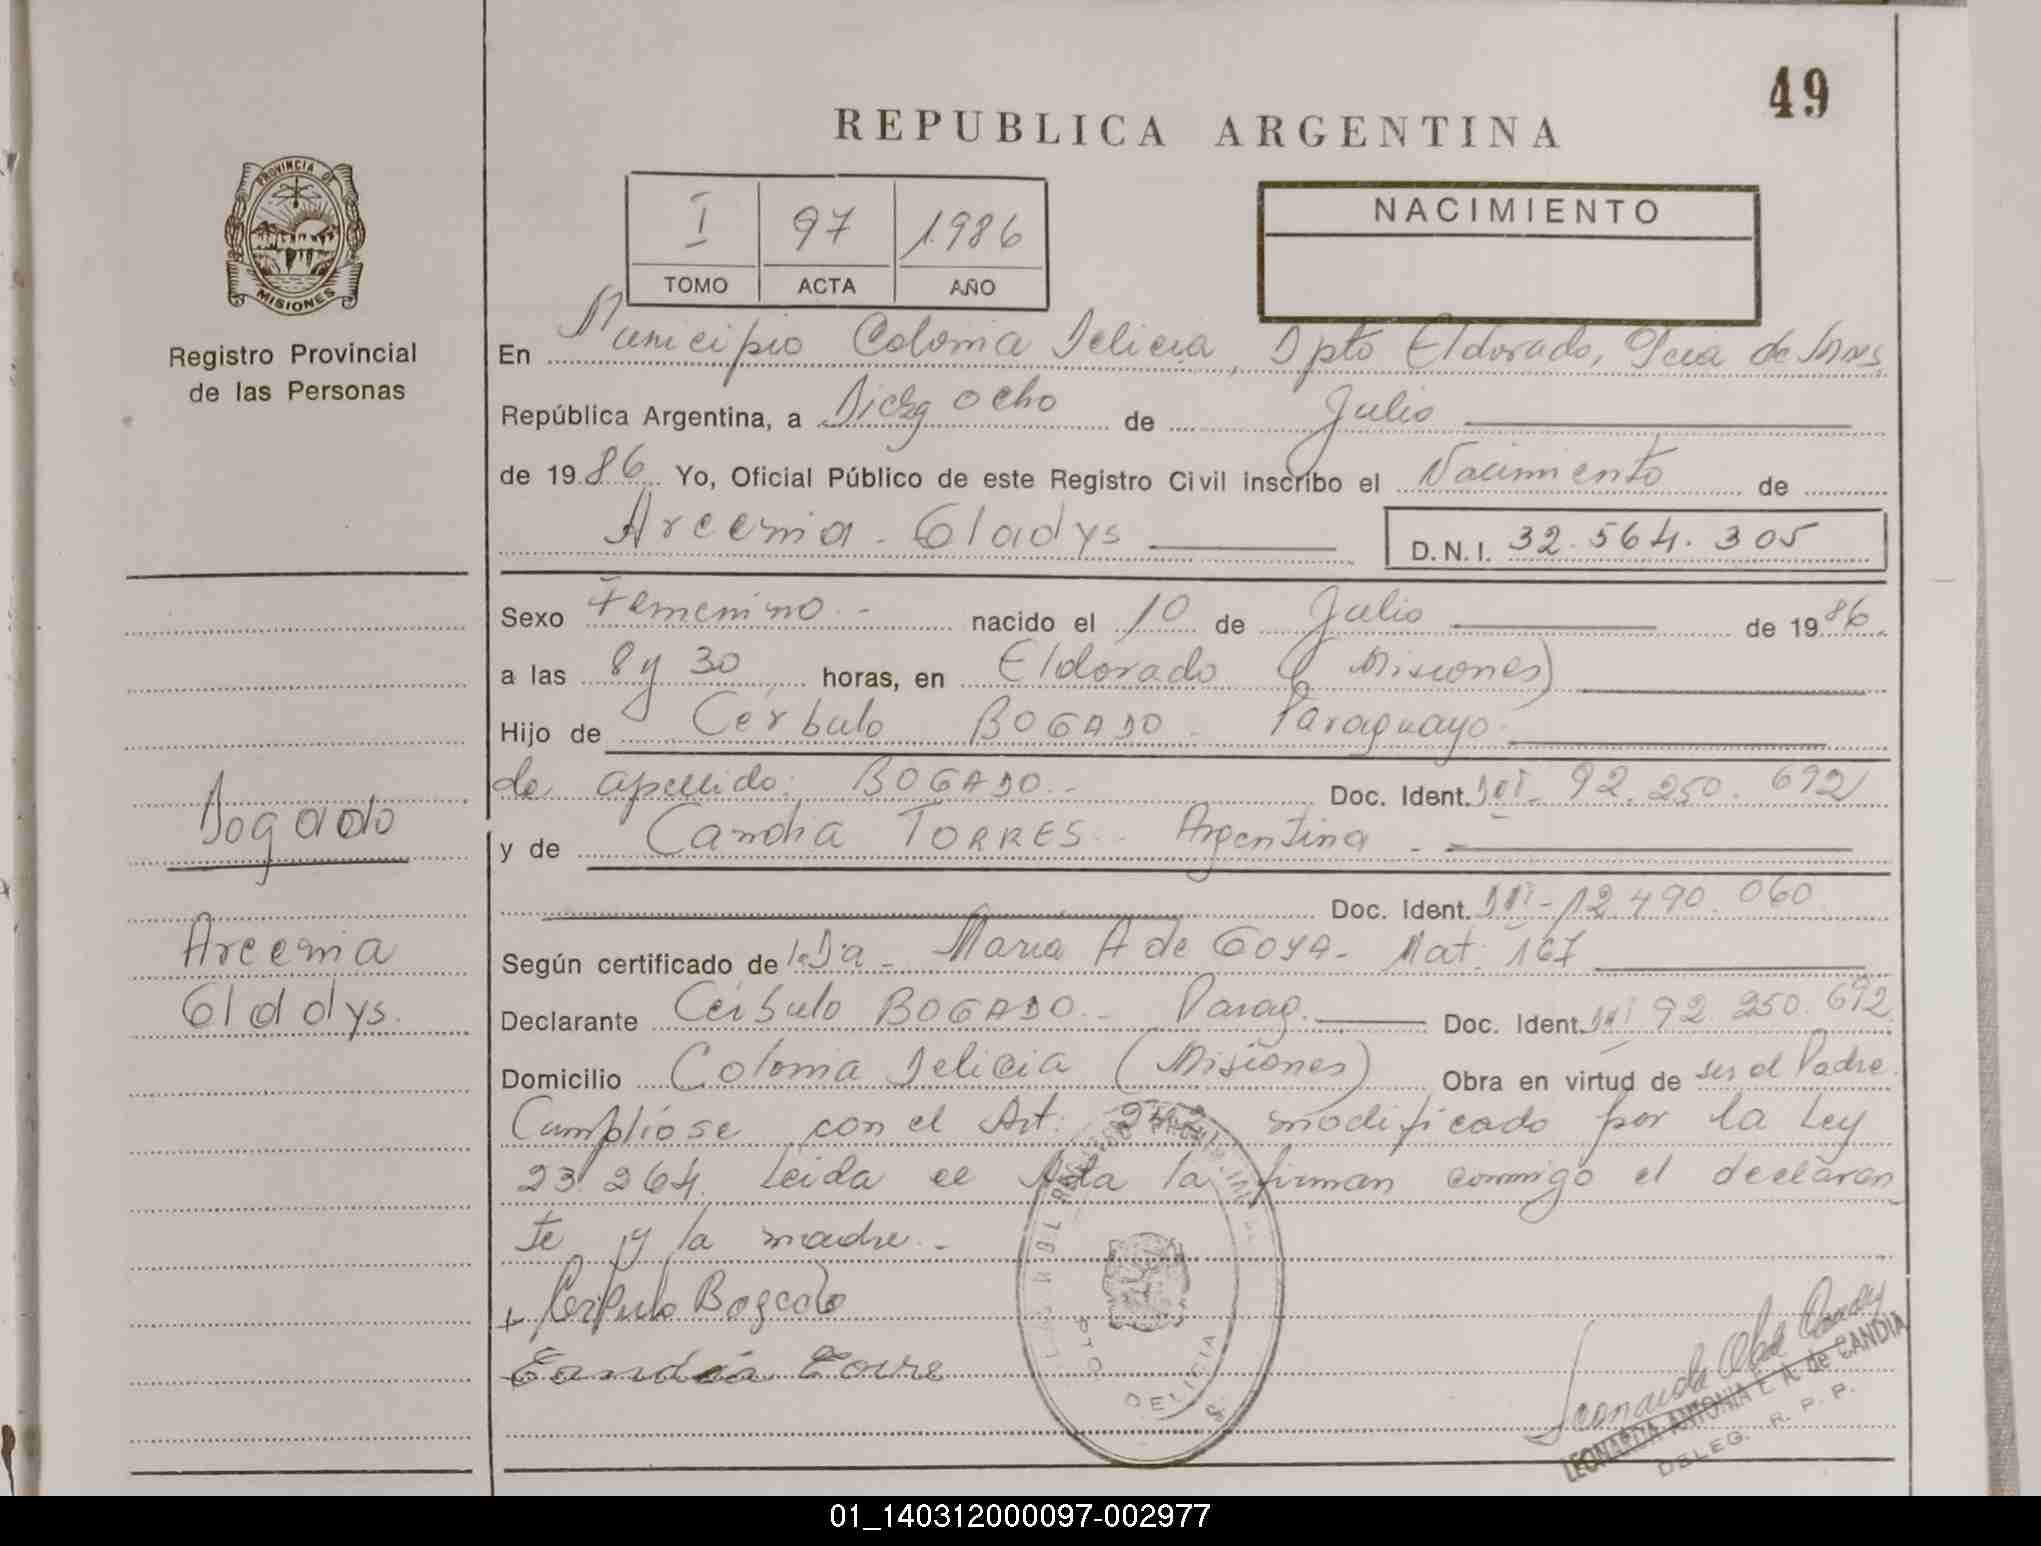 49
REPUBLICA ARGENTINA
PROVINCIA DE
MISIONES
Registro Provincial
de las Personas
I 97 1986
TOMO ACTA AÑO
NACIMIENTO
En Municipio Colonia Delicia, Dpto Eldorado, Pcia de Mnes
República Argentina, a Diez y ocho de Julio
de 1986 Yo, Oficial Público de este Registro Civil inscribo el Nacimiento de
Arcenia - Gladys D.N.I. 32.564.305
Sexo Femenino.- nacido el 10 de Julio de 1986.
a las 8 y 30 horas, en Eldorado (Misiones)
Hijo de Cérbulo BOGADO - Paraguayo.
de apellido: BOGADO.- Doc. Ident. DNI- 92.250.692
y de Candia TORRES.- Argentina.-
Doc. Ident. DNI- 12.490.060
Según certificado de la Da - María A de GOYA- Mat. 167
Declarante Cérbulo BOGADO.- Parag. Doc. Ident. DNI 92.250.692
Domicilio Colonia Delicia (Misiones) Obra en virtud de ser el Padre.
Cumplióse con el Art. 242 modificado por la Ley
23.264. Leida el Acta la firman conmigo el declaran
te y la madre.-
Bogado
Arcenia
Gladys.
+ Cerbulo Bogado
Candia Torre
DELICIA
LEONARDA ANTONIA L. A. de CANDIA
DELEG. R. P. P.
01_140312000097-002977